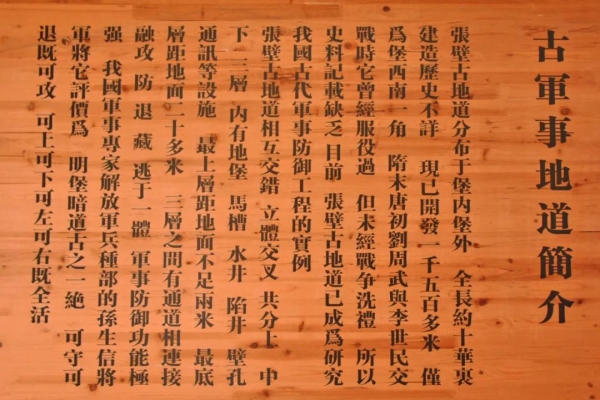 古軍事地道簡介
張壁古地道分布于堡内堡外 全長約十華裏
建造歷史不詳 現已開發一千五百多米 僅
爲堡西南一角 隋末唐初劉周武與李世民交
戰時它曾經服役過 但未經戰争洗禮 所以
史料記載缺之 目前 張壁古地道已成爲研究
我國古代軍事防御工程的實例
張壁古地道相互交錯 立體交叉 共分上 中
下 三層 内有地堡 馬槽 水井 陷井 壁孔
通訊等設施 最上層距地面不足兩米 最底
層距地面二十多米 三層之間有通道相連接
融攻 防 退 藏 逃于一體 軍事防御功能極
强 我國軍事專家解放軍兵種部的孫生信將
軍將它評價爲 明堡暗道古之一絶 可守可
退既可攻 可上可下可左可右既全活